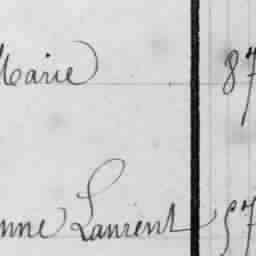 Marie 87
nne Laurent 57